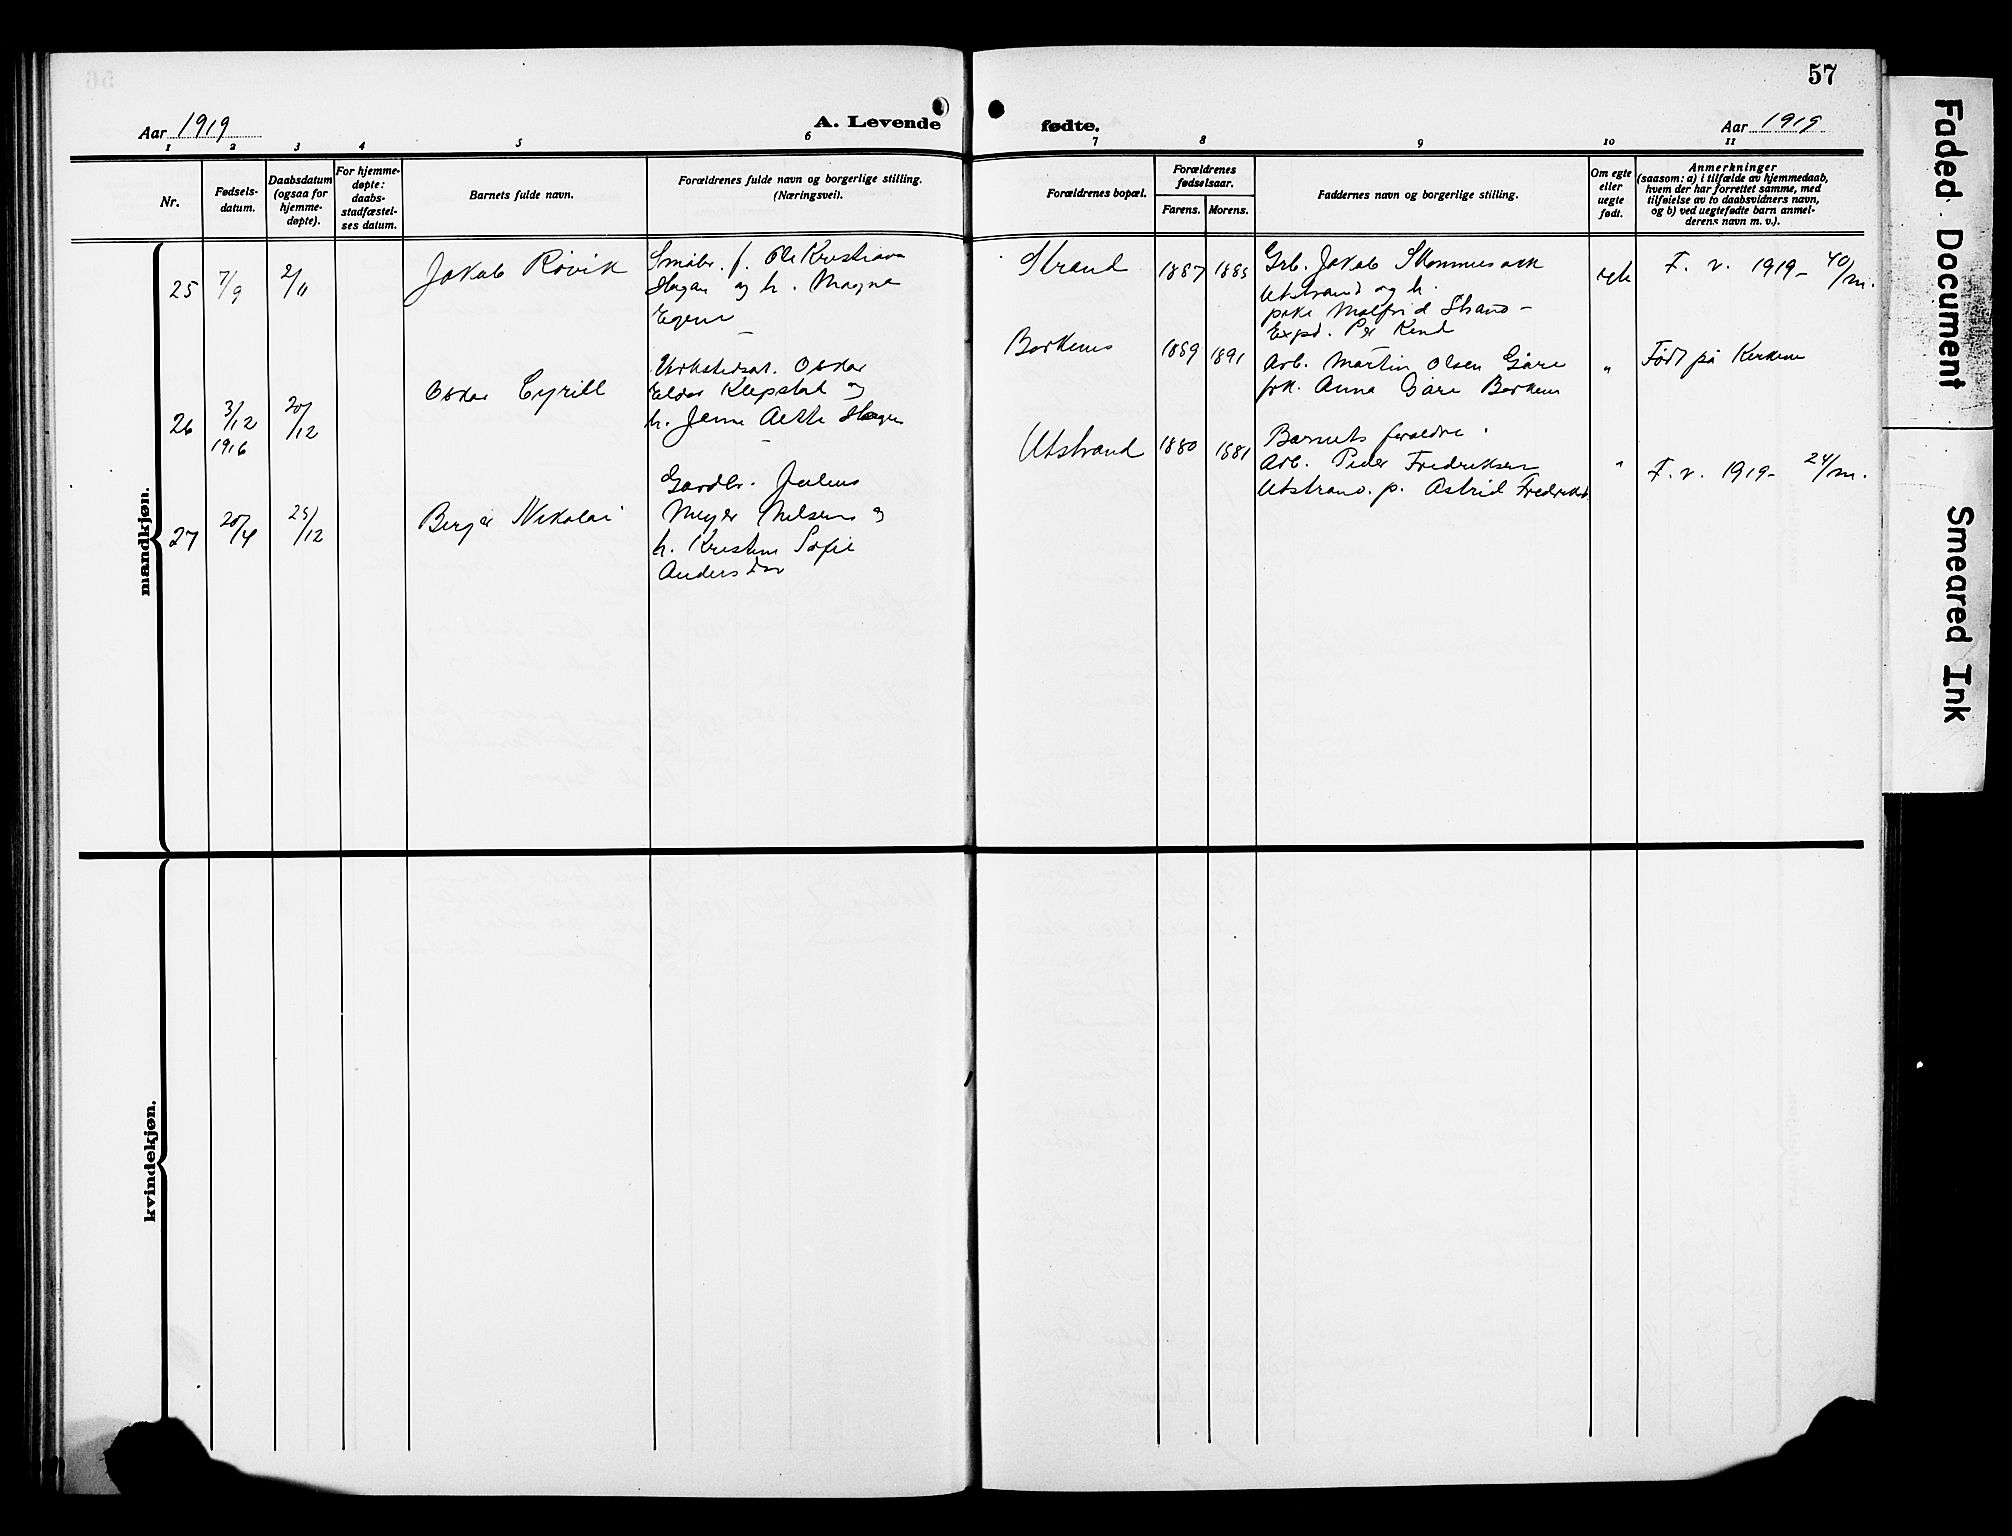 57
Aar 1919
A. Levende
fødte.
Aar 1919
1 2 3 4 5 6 7 8 9 10 11
Nr.
Fødsels-
datum.
Daabsdatum
(ogsaa for
hjemme-
døpte).
For hjemme-
døpte:
daabs-
stadfæstel-
ses datum.
Barnets fulde navn.
Forældrenes fulde navn og borgerlige stilling.
(Næringsvei).
Forældrenes bopæl.
Forældrenes
fødselsaar.
Farens. Morens.
Faddernes navn og borgerlige stilling.
Om egte
eller
uegte
født.
Anmerkninger
(saasom: a) i tilfælde av hjemmedaab,
hvem der har forrettet samme, med
tilføielse av to daabsvidners navn,
og b) ved uegtefødte barn anmel-
derens navn m. v.).
mandkjøn.
25
7/9
2/11
Jakob Rövik
Småbr. f. Ole Kristian
Hagan og h. Magna
Strand
1887 1885
Grb. Jakob
Utstrand og h.
pike Malfrid Strand
Expd. Per
egte
F. v. 1919 - 40/m.
26
3/12
1916
20/12
Oskar Cyrill
Oskar
Eldor Klepstad og
h. Jenny
Borkenes
1889 1891
Arb. Martin Olsen Gåre
frk. Anna Gåre Borkenes
"
Født på
27
20/4
25/12
Birger Nikolai
Gårdbr. Julius
Meyer Nilsen og
h. Kristine Sofie
Andersdtr
Utstrand
1880 1881
Barnets foreldre.
Arb. Peder Fredriksen
Utstrand. p. Astrid
"
F. v. 1919 - 24/m.
kvindekjøn.
Faded Document
Smeared Ink